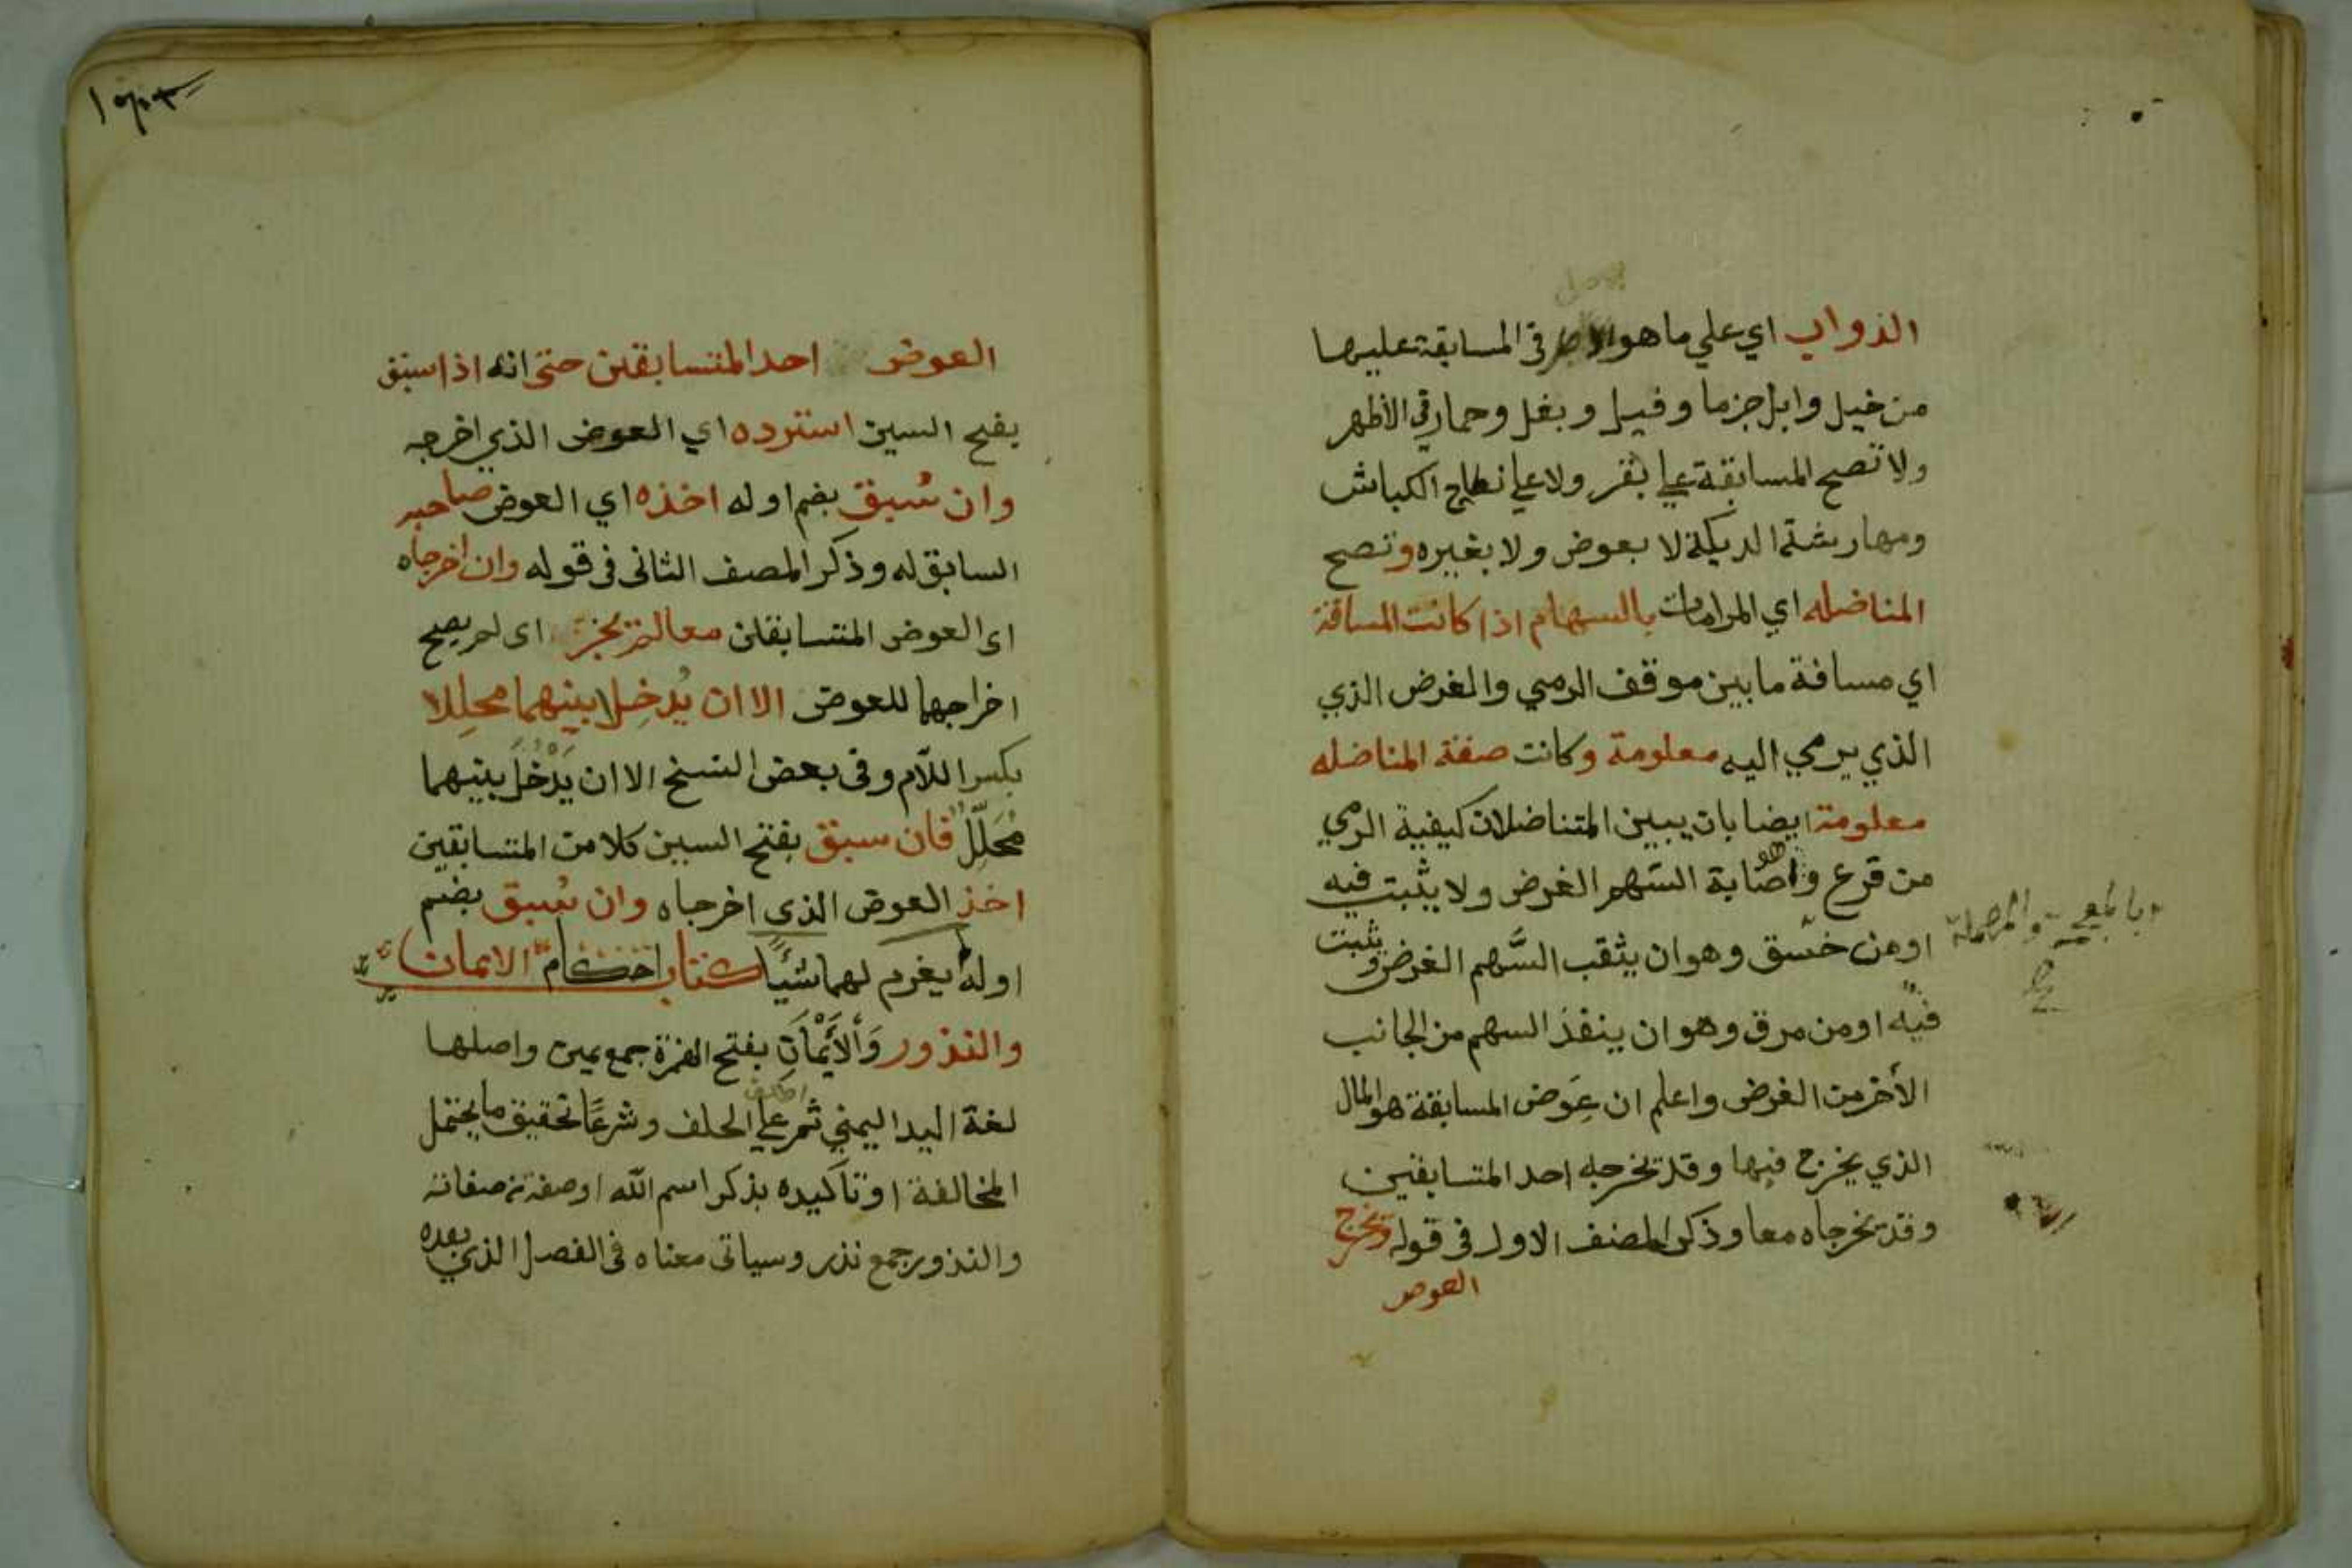 الدواب اي علي ما هو الاصل في المسابقة عليها
من خيل وابل جزما وفيل وبغل وحمار في الأظهر
ولا تصح المسابقة علي بقر ولا علي نطاح الكباش
ومهارشة الديكة لا بعوض ولا بغيره وتصح
المناضله اي المرامات بالسهام اذا كانت المسافة
اي مسافة ما بين موقف الرمي والغرض الذي
الذي يرمي اليه معلومة وكانت صفة المناضله
معلومة ايضا بان يبين المتناضلان كيفية الرمي
من قرع وهو اصابة السهم الغرض ولا يثبت فيه
او من خسق وهو ان يثقب السَّهم الغرض ويثبت
بالمعجمة والمهملة
فيه او من مرق وهو ان ينفذ السهم من الجانب
الأخر من الغرض واعلم ان عِوَض المسابقة هو المال
الذي يخرج فيها وقد يخرجه احد المتسابقين
وقد يخرجاه معا وذكر المصنف الاول في قوله ويخرج
العوض
العوض احد المتسابقين حتى انه اذا سبق
بفتح السين استرده اي العوض الذي اخرجه
وان سُبق بضم اوله اخذه اي العوض صاحبه
السابق له وذكر المصنف الثانى فى قوله وان اخرجاه
اى العوض المتسابقان معا لم يجز اى لم يصح
اخراجهما للعوض الا ان يُدخِلا بينهما محلِلا
بكسر اللام وفى بعض النسخ الا ان يَدْخُلَ بينهما
مُحَلِّلٌ فان سبق بفتح السين كلا من المتسابقين
اخذ العوض الذى اخرجاه وان سُبق بضم
اوله لم يغرم لهما شيًا كتاب احكام الايمان
والنذور وَالأَيْمَانِ بفتح الهمزة جمع يمين واصلها
لغة اليد اليمني ثم علي الحلف وشرعًا تحقيق ما يحتمل
المخالفة او تأكيده بذكر اسم الله او صفة من صفاته
والنذور جمع نذر وسياتى معناه فى الفصل الذي بعده